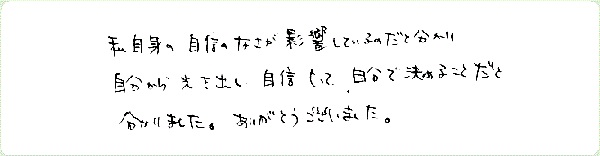 私自身の自信のなさが影響しているのだと分かり
自分から光を出し自信もって、自分で決めることだと
分かりました。ありがとうございました。